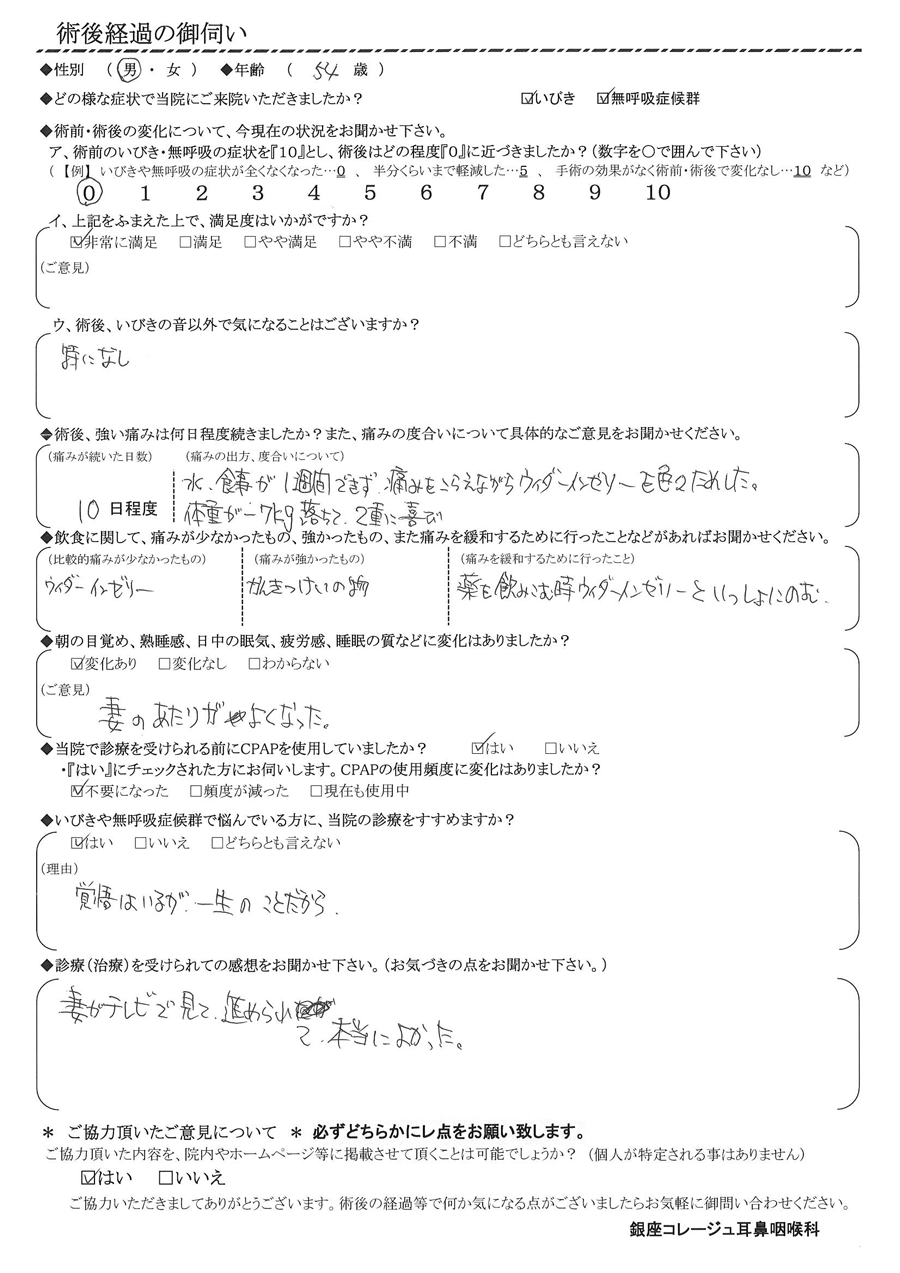 術後経過の御伺い
◆性別 （ 男 ・ 女 ） ◆年齢 （ 54 歳 ）
◆どの様な症状で当院にご来院いただきましたか？ ☑いびき ☑無呼吸症候群
◆術前・術後の変化について、今現在の状況をお聞かせ下さい。
ア、術前のいびき・無呼吸の症状を『10』とし、術後はどの程度『0』に近づきましたか？（数字を〇で囲んで下さい）
（【例】 いびきや無呼吸の症状が全くなくなった…0 、 半分くらいまで軽減した…5 、 手術の効果がなく術前・術後で変化なし…10 など）
0 1 2 3 4 5 6 7 8 9 10
イ、上記をふまえた上で、満足度はいかがですか？
☑非常に満足 □満足 □やや満足 □やや不満 □不満 □どちらとも言えない
（ご意見）
ウ、術後、いびきの音以外で気になることはございますか？
特になし
◆術後、強い痛みは何日程度続きましたか？また、痛みの度合いについて具体的なご意見をお聞かせください。
（痛みが続いた日数） （痛みの出方、度合いについて）
水、食事が1週間できず、痛みをこらえながらウィダーインゼリーを色々ためした。
10 日程度 体重が－7kg落ちて、2重に喜び
◆飲食に関して、痛みが少なかったもの、強かったもの、また痛みを緩和するために行ったことなどがあればお聞かせください。
（比較的痛みが少なかったもの） （痛みが強かったもの） （痛みを緩和するために行ったこと）
ウィダーインゼリー かんきつけいの物 薬を飲みこむ時ウィダーインゼリーといっしょにのむ.
◆朝の目覚め、熟睡感、日中の眠気、疲労感、睡眠の質などに変化はありましたか？
☑変化あり □変化なし □わからない
（ご意見）
妻のあたりがよくなった。
◆当院で診療を受けられる前にCPAPを使用していましたか？ ☑はい □いいえ
・『はい』にチェックされた方にお伺いします。CPAPの使用頻度に変化はありましたか？
☑不要になった □頻度が減った □現在も使用中
◆いびきや無呼吸症候群で悩んでいる方に、当院の診療をすすめますか？
☑はい □いいえ □どちらとも言えない
（理由）
覚悟はいるが、一生のことだから.
◆診療（治療）を受けられての感想をお聞かせ下さい。（お気づきの点をお聞かせ下さい。）
妻がテレビで見て、進められ
て、本当によかった。
＊ ご協力頂いたご意見について ＊ 必ずどちらかにレ点をお願い致します。
ご協力頂いた内容を、院内やホームページ等に掲載させて頂くことは可能でしょうか？ （個人が特定される事はありません）
☑はい □いいえ
ご協力いただきましてありがとうございます。術後の経過等で何か気になる点がございましたらお気軽に御問い合わせください。
銀座コレージュ耳鼻咽喉科